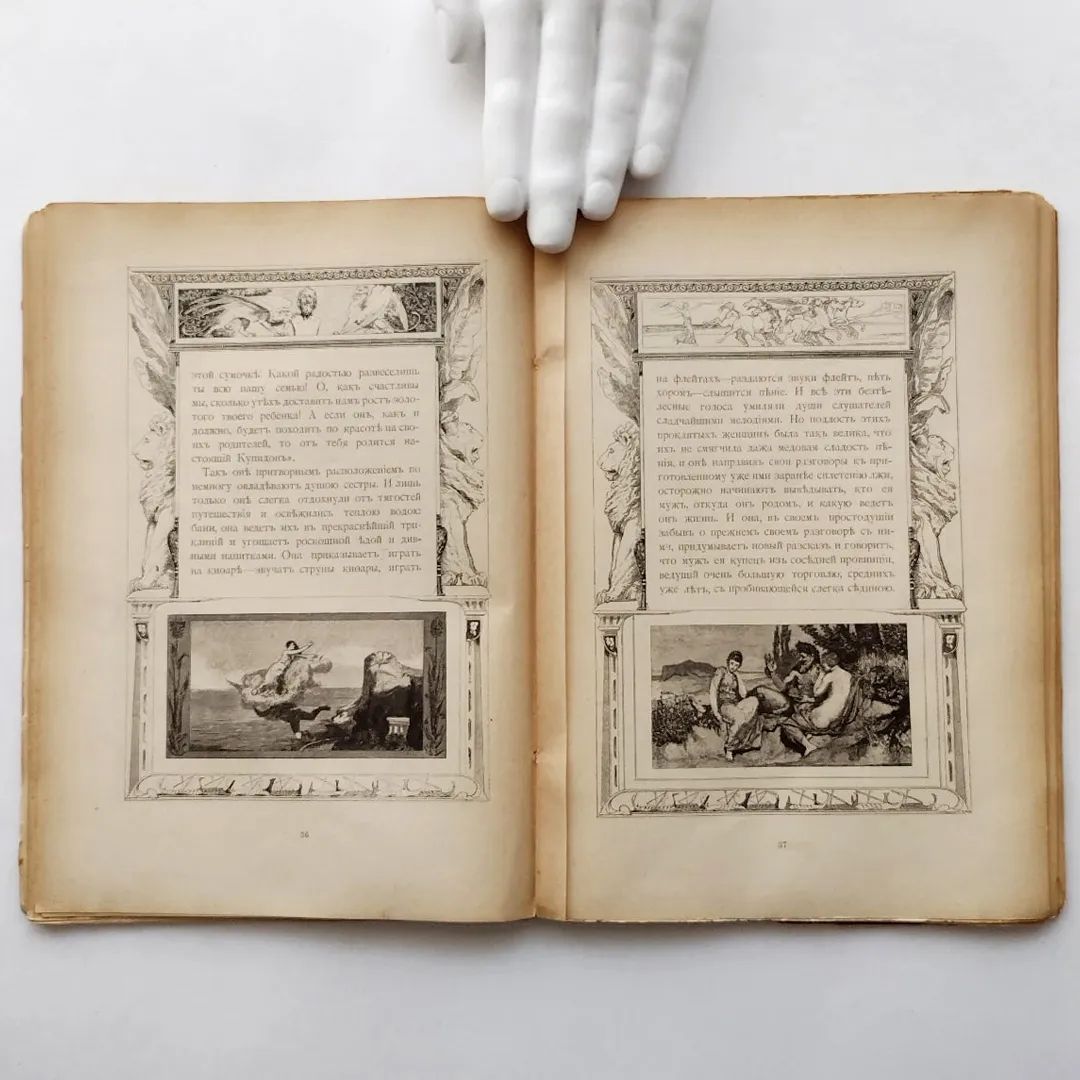 этой сумочкѣ. Какой радостью развеселишь
ты всю нашу семью! О, какъ счастливы
мы, сколько утѣхъ доставитъ намъ ростъ золо-
того твоего ребенка! А если онъ, какъ и
должно, будетъ походить по красотѣ на сво-
ихъ родителей, то отъ тебя родится на-
стоящій Купидонъ».
Такъ онѣ притворнымъ расположеніемъ по
немногу овладѣваютъ душою сестры. И лишь
только онѣ слегка отдохнули отъ тягостей
путешествія и освѣжились теплою водою
бани, она ведетъ ихъ въ прекраснѣйшій три-
клиній и угощаетъ роскошной ѣдой и див-
ными напитками. Она приказываетъ играть
на киѳарѣ—звучатъ струны киѳары, играть
36
на флейтахъ—раздаются звуки флейтъ, пѣть
хоромъ—слышится пѣніе. И всѣ эти безтѣ-
лесные голоса умиляли души слушателей
сладчайшими мелодіями. Но подлость этихъ
проклятыхъ женщинъ была такъ велика, что
ихъ не смягчила даже медовая сладость пѣ-
нія, и онѣ направивъ свои разговоры къ при-
готовленному уже ими заранѣе сплетенію лжи,
осторожно начинаютъ вывѣдывать, кто ея
мужъ, откуда онъ родомъ, и какую ведетъ
онъ жизнь. И она, въ своемъ простодушіи
забывъ о прежнемъ своемъ разговорѣ съ ни-
ми, придумываетъ новый разсказъ и говоритъ,
что мужъ ея купецъ изъ сосѣдней провинціи,
ведущій очень большую торговлю, среднихъ
уже лѣтъ, съ пробивающейся слегка сѣдиною.
37